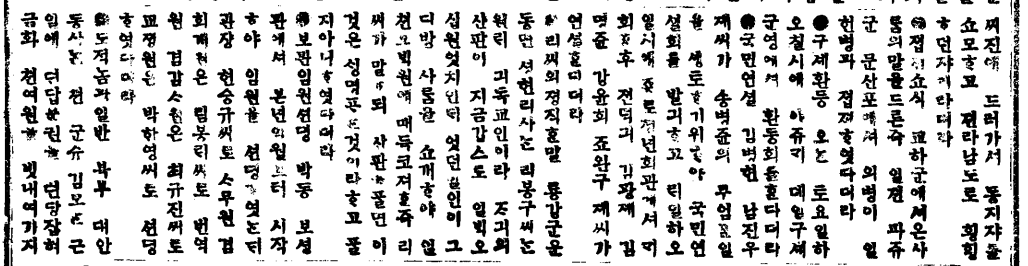 씨진애 드러가셔 동지쟈들
쇼모ᄒᆞ고 젼라남도로 횡힝
ᄒᆞ던쟈ㅣ라더라
●접젼쇼식 교하군에셔온사
ᄅᆞᆷ의말을드른즉 일젼 파쥬
군 문산포에셔 의병이 일
헌병과 접젼ᄒᆞ엿다더라
●구셰환등 오ᄂᆞᆫ 토요일하
오칠시에 야쥬ᄀᆡ 대일구셰
군영에셔 환동회를ᄒᆞᆫ다더라
●국민연셜 김병헌 남진우
재씨가 송병쥰의 무엄ᄒᆞᆫ일
을 셩토ᄒᆞ기위ᄒᆞ야 국민연
셜회를 발긔ᄒᆞ고 ᄅᆡ일하오
일시에 죵로쳥년회관에셔 ᄀᆡ
회ᄒᆞ고 젼덕긔 김광졔 김
명쥰 강윤회 죠완구 졔씨가
연셜ᄒᆞᆫ다더라
●리씨의졍직ᄒᆞᆫ말 룡강군운
동면 셔현리사ᄂᆞᆫ 리봉구씨ᄂᆞᆫ
원ᄅᆡ 긔독교인이라
산판이 지금갑스로 일ᄇᆡᆨ오
십원엇치인ᄃᆡ 엇던일인이 그
디방 사ᄅᆞᆷ을 쇼개ᄒᆞ야 일
쳔오ᄇᆡᆨ원에 매득코져ᄒᆞᆫ즉 리
씨가 말ᄒᆞ되 사판을풀면 이
것은 셩명 것이라ᄒᆞ고 풀
지아니ᄒᆞ엿다더라
●보관임원션뎡 박동 보셩
관에셔 본년의월브터 시작
ᄒᆞ야 임원을 션뎡ᄒᆞ엿ᄂᆞᆫᄃᆡ
관쟝 현승규씨로 ᄉᆞ무원겸
회계원은 림봉리씨로 번역
원 겸감ᄉᆞ원은 최규진씨로
교졍원은 박하영씨로 션뎡
ᄒᆞ엿다더라
●도젹놈과일반 북부 대안
동사ᄂᆞᆫ 젼 군슈 김모ᄂᆞᆫ 근
일에 뎐답문권을 뎐당잡혀
금화 쳔여원을 빗내여가지